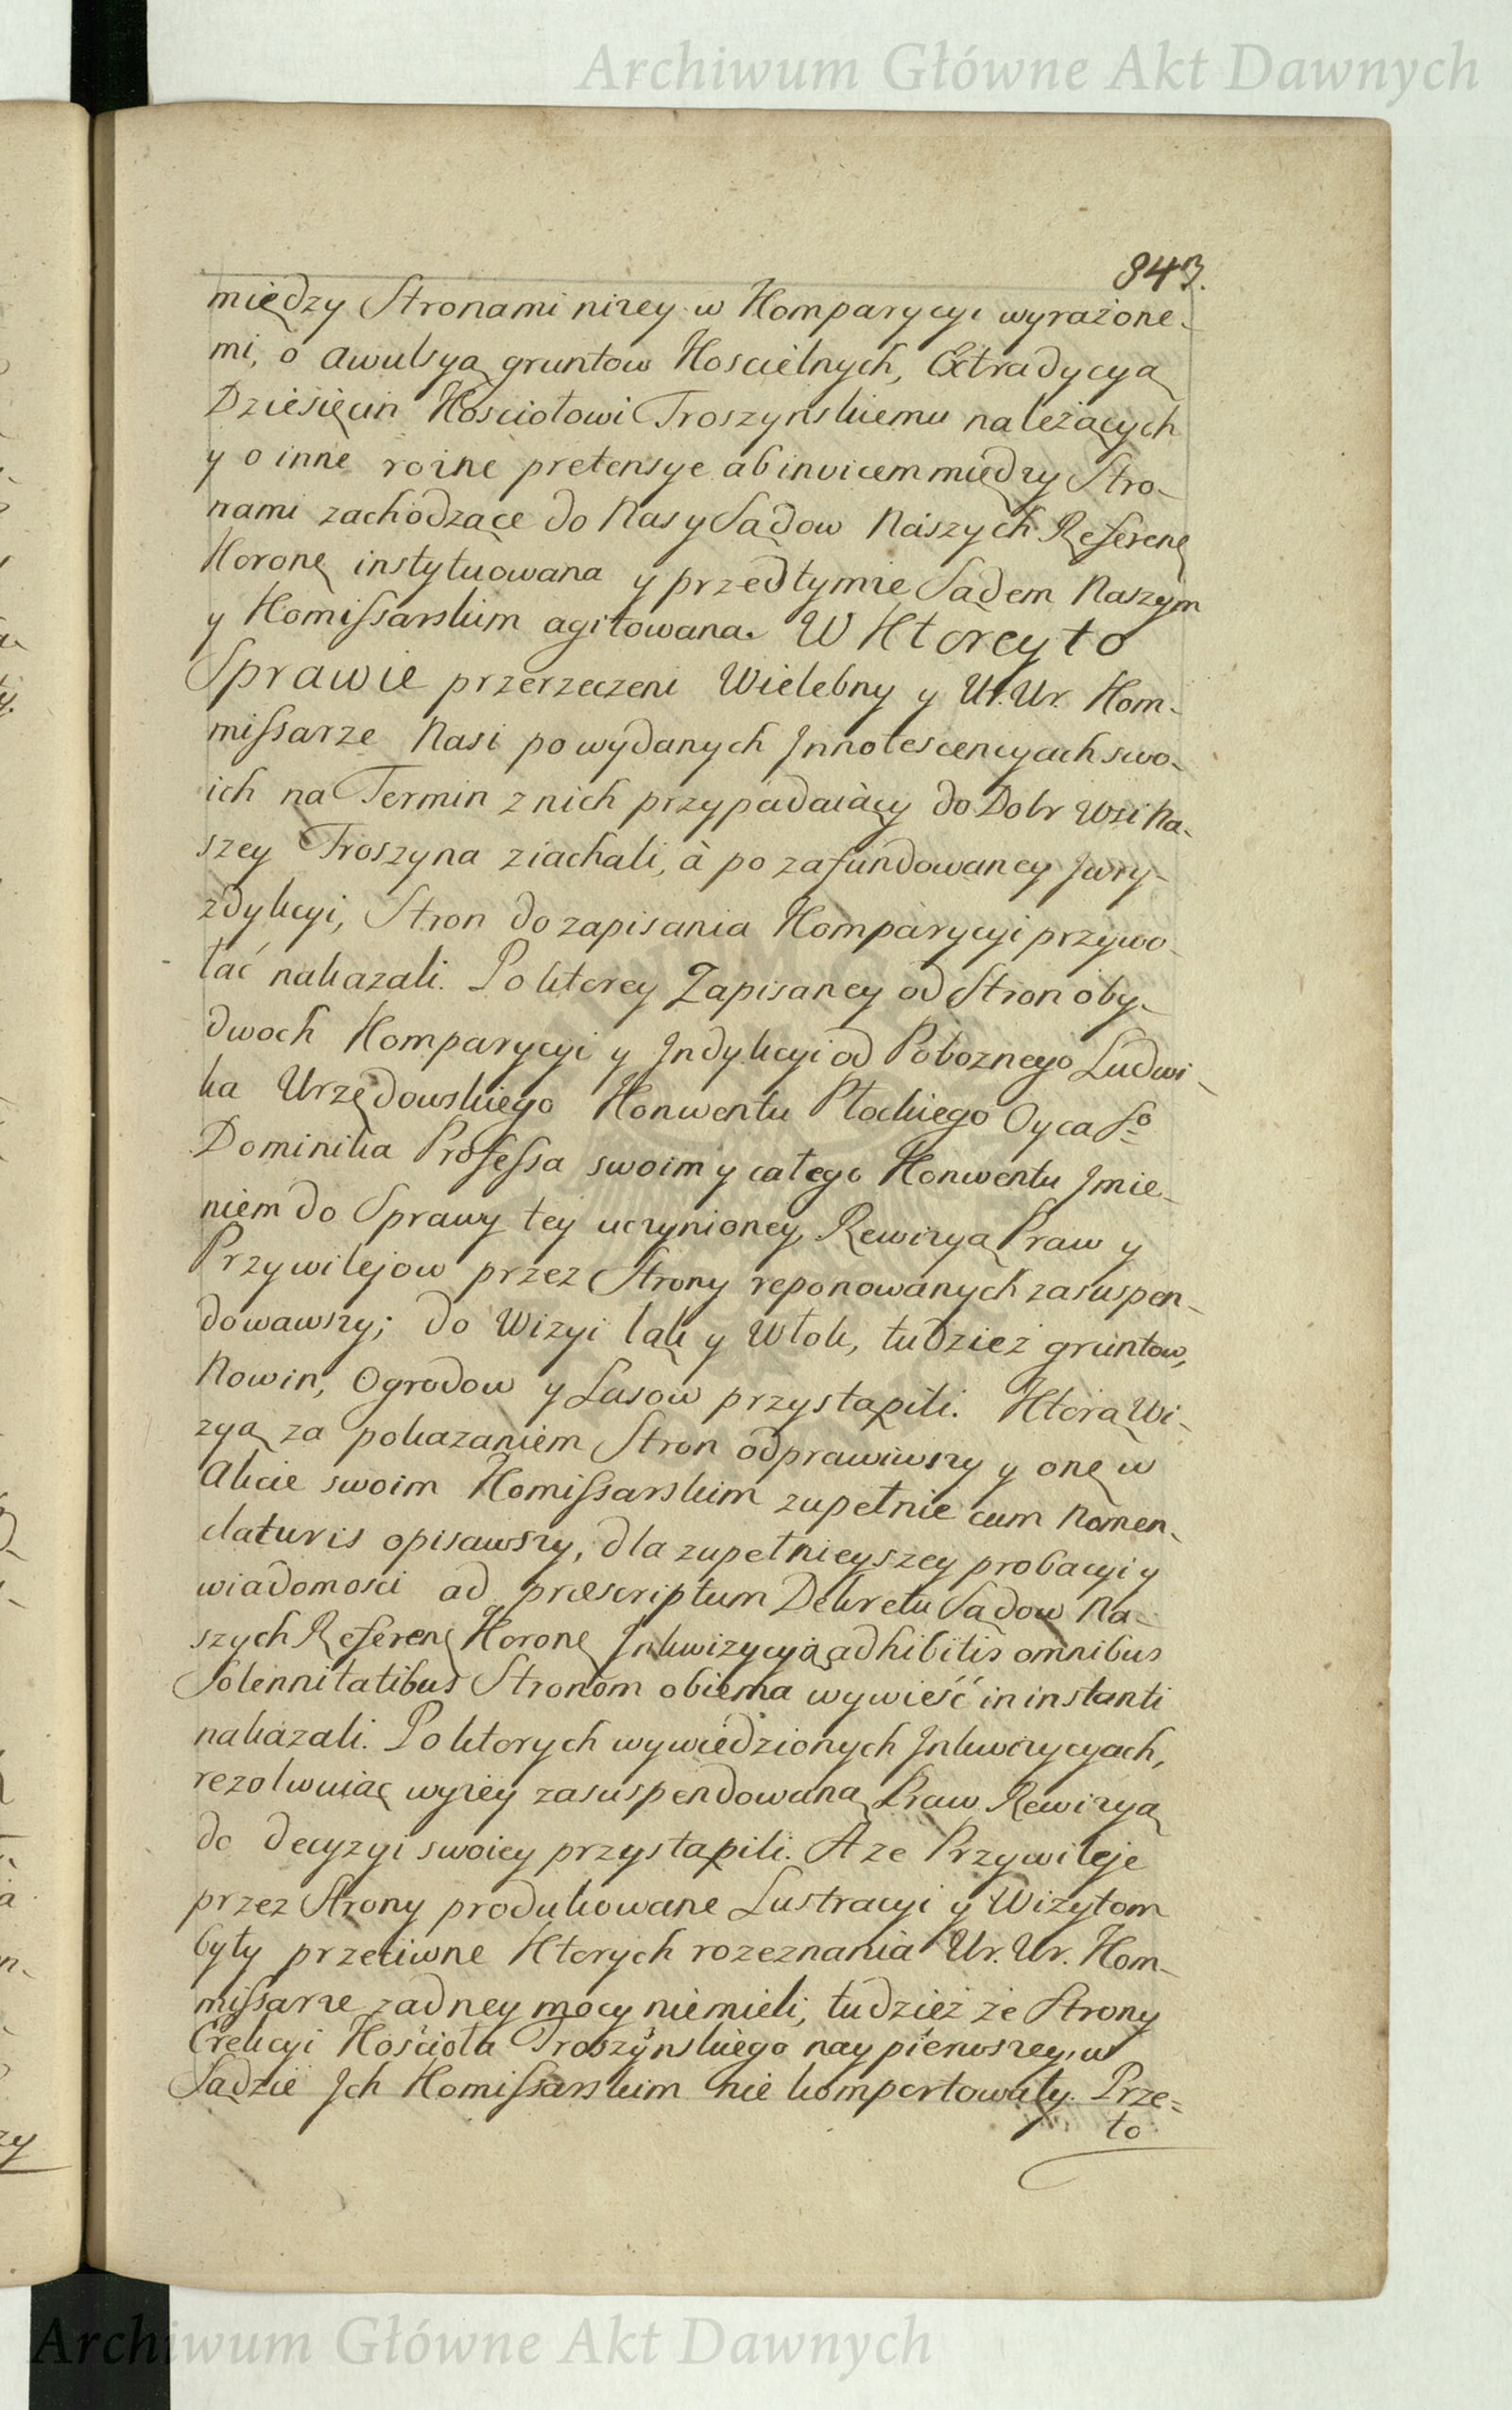 Archiwum Główne Akt Dawnych
843.
między Stronami nizey w Komparycyi wyrażone-
mi, o awulsyą gruntow Koscielnych, Extradycyą
Dziesięcin Kosciołowi Troszynskiemu należących
y o inne rozne pretensye ab invicem między Stro-
nami zachodzące do Nas y Sądow Naszych Referen
Koron instytuowana y przedtymie Sądem Naszym
y Komissarskim agitowana. W Ktorey to
Sprawie przerzeczeni Wielebny y Ur. Ur. Kom-
missarze Nasi po wydanych Innotescencyach swo-
ich na Termin z nich przypadaiący do Dobr Wsi Na-
szey Troszyna ziachali, à po zafundowaney Jury-
zdykcyi, Stron do zapisania Komparycyi przywo-
łać nakazali. Po ktorey Zapisaney od Stron oby-
dwoch Komparycyi y Indykcyi od Pobożnego Ludwi-
ka Urzędowskiego Konwentu Płockiego Oyca So
Dominika Professa swoim y całego Konwentu Jmie-
niem do Sprawy tey uczynioney, Rewizyą Praw y
Przywilejow przez Strony reponowanych zasuspen-
dowawszy; do Wizyi łąk y Włok, tudzież gruntow,
Nowin, Ogrodow y Lasow przystąpili. Którą Wi-
zyą za pokazaniem Stron odprawiwszy y onę w
Akcie swoim Komissarskim zupełnie cum Nomen-
claturis opisawszy, dla zupełnieyszey probacyi y
wiadomosci ad præscriptum Dekretu Sądow Na-
szych Referen Koron Inkwizycyią adhibitis omnibus
Solennitatibus Stronom obiema wywieść in instanti
nakazali. Po ktorych wywiedzionych Inkwizycyach,
rezolwuiąc wyzey zasuspendowaną Praw Rewizyą
do decyzyi swoiey przystąpili. A ze Przywileje
przez Strony produkowane Lustracyi y Wizytom
były przeciwne Ktorych rozeznania Ur. Ur. Kom-
missarze zadney mocy niemieli, tudzież że Strony
Erekcyi Kościoła Troszyńskiego naypierwszey, w
Sądzie Jch Komissarskim nie komportowały. Prze=
to
Archiwum Główne Akt Dawnych